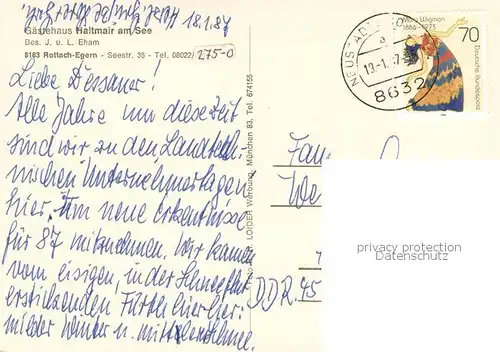 18.1.87
Gästehaus Haltmair am See
Bes. J. u. L. Eham
8183 Rottach-Egern - Seestr. 35 - Tel. 08022/
275-0
Liebe Dessauer!
Alle Jahre um diese Zeit
sind wir zu den Landtech-
nischen Unternehmertagen
hier. Um neue Erkenntnisse
für 87 mitzunehmen. Wir kamen
vom eisigen, in der Schneeflut
erstickenden Fürth hierher:
milder Winter u.
LOIDER Werbung, München 83, Tel. 674155
NEUSTADT
8632
Mary Wigman
1886-1973
70
Deutsche Bundespost
Fam
We
DDR 45
privacy protection
Datenschutz